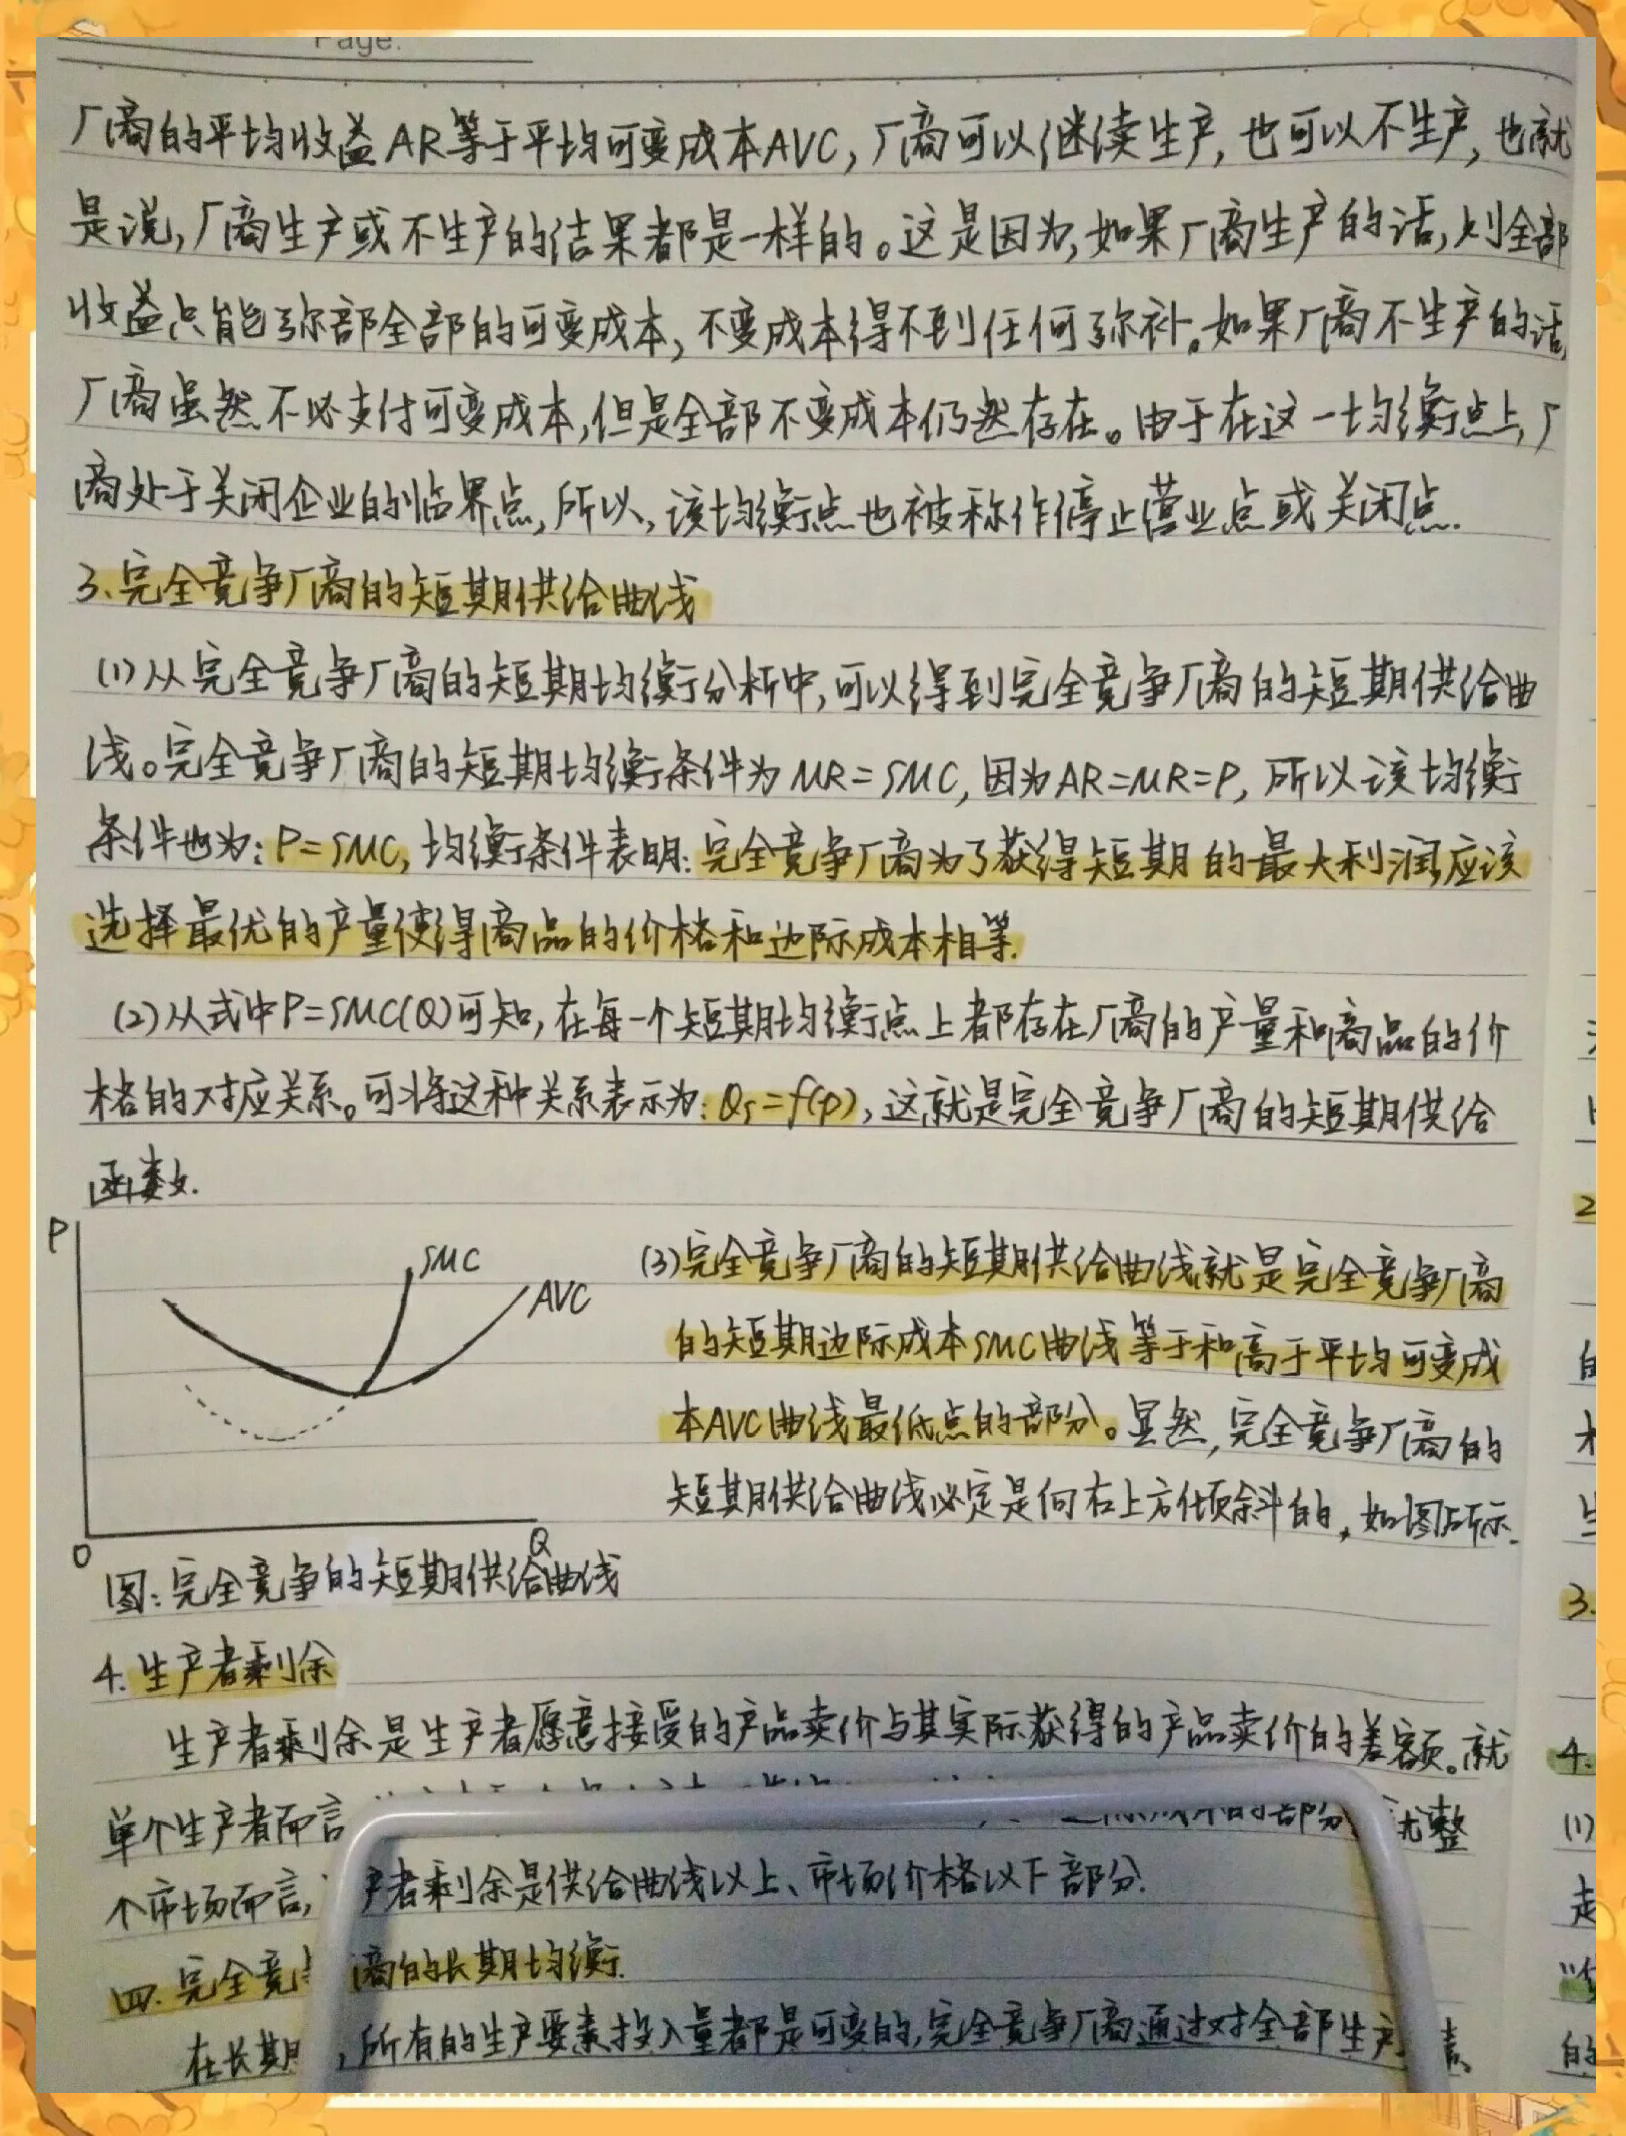 Page:
厂商的平均收益AR等于平均可变成本AVC,厂商可以继续生产,也可以不生产,也就
是说,厂商生产或不生产的结果都是一样的。这是因为,如果厂商生产的话,则全部
收益只能弥部全部的可变成本,不变成本得不到任何弥补。如果厂商不生产的话,
厂商虽然不必支付可变成本,但是全部不变成本仍然存在。由于在这一均衡点上,厂
商处于关闭企业的临界点,所以,该均衡点也被称作停止营业点或关闭点.
3.完全竞争厂商的短期供给曲线
(1)从完全竞争厂商的短期均衡分析中,可以得到完全竞争厂商的短期供给曲
线。完全竞争厂商的短期均衡条件为MR=SMC,因为AR=MR=P,所以该均衡
条件也为:P=SMC,均衡条件表明:完全竞争厂商为了获得短期的最大利润,应该
选择最优的产量使得商品的价格和边际成本相等.
(2)从式中P=SMC(Q)可知,在每一个短期均衡点上都存在厂商的产量和商品的价
格的对应关系。可将这种关系表示为:Qs=f(p),这就是完全竞争厂商的短期供给
函数.
P
SMC
AVC
O
Q
(3)完全竞争厂商的短期供给曲线就是完全竞争厂商
的短期边际成本SMC曲线等于和高于平均可变成
本AVC曲线最低点的部分。显然,完全竞争厂商的
短期供给曲线必定是向右上方倾斜的,如图所示.
图:完全竞争的短期供给曲线
4.生产者剩余
生产者剩余是生产者愿意接受的产品卖价与其实际获得的产品卖价的差额。就
单个生产者而言 的部分 就整
个市场而言, 产者剩余是供给曲线以上、市场价格以下部分.
四.完全竞 商的长期均衡.
在长期 ,所有的生产要素投入量都是可变的,完全竞争厂商通过对全部生产 素
2
3.
4.
(1)
走
的